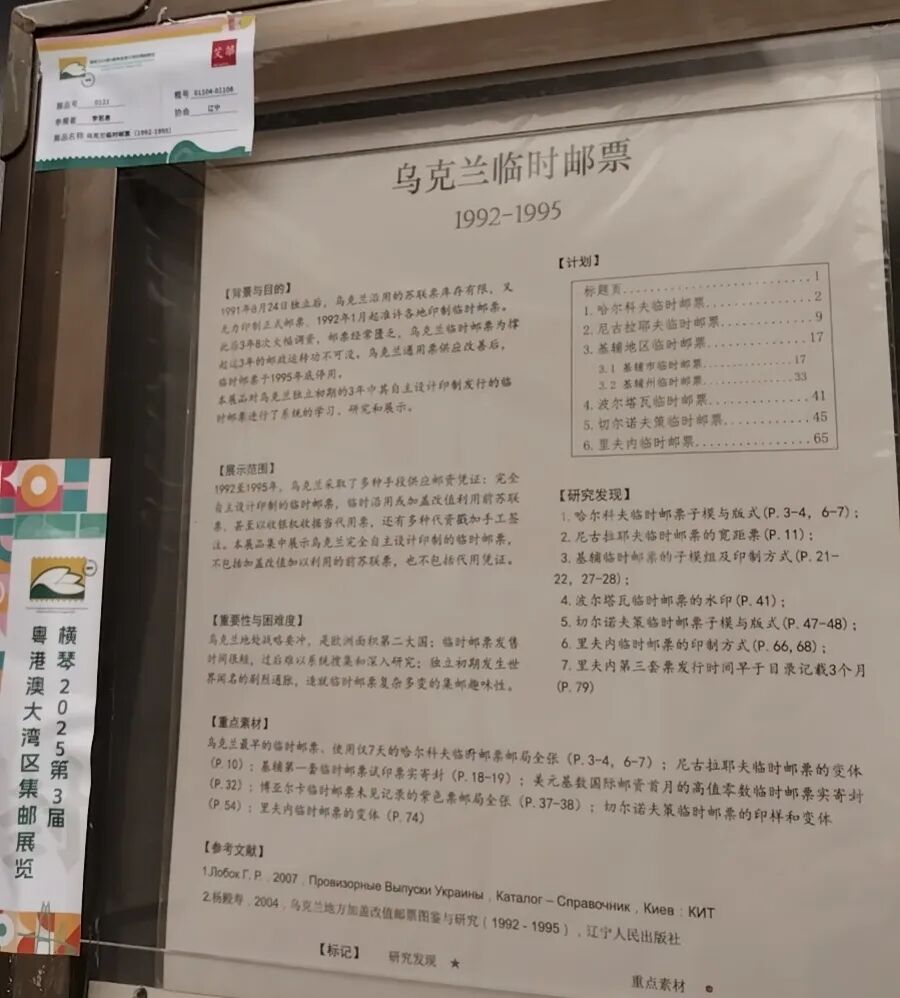 艾华
展品号 0121
框号 01104-01108
参展者
协会 辽宁
展品名称 乌克兰临时邮票 (1992-1995)
乌克兰临时邮票
1992-1995
【背景与目的】
1991年8月24日独立后，乌克兰沿用的苏联票库存有限，又
无力印制正式邮票，1992年1月起准许各地印制临时邮票。
此后3年8次大幅调资，邮票经常匮乏，乌克兰临时邮票为撑
起这3年的邮政运转功不可没。乌克兰通用票供应改善后，
临时邮票于1995年底停用。
本展品对乌克兰独立初期的3年中其自主设计印制发行的临
时邮票进行了系统的学习、研究和展示。
【展示范围】
1992至1995年，乌克兰采取了多种手段供应邮资凭证：完全
自主设计印制的临时邮票，临时沿用或加盖改值利用前苏联
票，甚至以收银机收据当代用票，还有多种代资戳加手工签
注。本展品集中展示乌克兰完全自主设计印制的临时邮票，
不包括加盖改值加以利用的前苏联票，也不包括代用凭证。
【重要性与困难度】
乌克兰地处战略要冲，是欧洲面积第二大国；临时邮票发售
时间很短，过后难以系统搜集和深入研究；独立初期发生世
界闻名的剧烈通胀，造就临时邮票复杂多变的集邮趣味性。
【计划】
标题页............................1
1.哈尔科夫临时邮票................2
2.尼古拉耶夫临时邮票..............9
3.基辅地区临时邮票...............17
3.1 基辅市临时邮票...............17
3.2 基辅州临时邮票...............33
4.波尔塔瓦临时邮票...............41
5.切尔诺夫策临时邮票.............45
6.里夫内临时邮票.................65
【研究发现】
1.哈尔科夫临时邮票子模与版式(P.3-4，6-7)；
2.尼古拉耶夫临时邮票的宽距票(P.11)；
3.基辅临时邮票的子模组及印制方式(P.21-
22，27-28)；
4.波尔塔瓦临时邮票的水印(P.41)；
5.切尔诺夫策临时邮票子模与版式(P.47-48)；
6.里夫内临时邮票的印制方式(P.66,68)；
7.里夫内第三套票发行时间早于目录记载3个月
(P.79)
【重点素材】
乌克兰最早的临时邮票、使用仅7天的哈尔科夫临时邮票邮局全张（P.3-4，6-7）；尼古拉耶夫临时邮票的变体
（P.10）；基辅第一套临时邮票试印票实寄封（P.18-19）；美元基数国际邮资首月的高值零数临时邮票实寄封
（P.32）；博亚尔卡临时邮票未见记录的紫色票邮局全张（P.37-38）；切尔诺夫策临时邮票的印样和变体
（P.54）；里夫内临时邮票的变体（P.74）
【参考文献】
1.Лобок Г. Р.，2007，Провизорные Выпуски Украины，Каталог – Справочник，Киев：КИТ
2.杨毅寿，2004，乌克兰地方加盖改值邮票图鉴与研究（1992 - 1995），辽宁人民出版社
【标记】 研究发现 ★ 重点素材
横琴2025第3届
粤港澳大湾区集邮展览